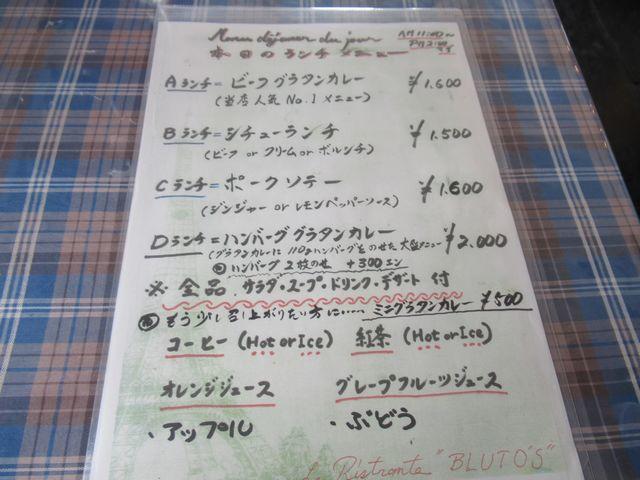 Menu déjeuner du jour AM 11:00〜
本日のランチメニュー PM 2:00 まで
Aランチ=ビーフグラタンカレー ¥1.600
(当店人気No.1メニュー)
Bランチ=シチューランチ ¥1.500
(ビーフ or クリーム or ボルシチ)
Cランチ=ポークソテー ¥1.600
(ジンジャー or レモンペッパーソース)
Dランチ=ハンバーググラタンカレー ¥2.000
(グラタンカレーに110gハンバーグをのせた大盛メニュー
ハンバーグ2枚のせ +300エン
※全品 サラダ・スープ・ドリンク・デザート付
もう少し召し上がりたい方に…… ミニグラタンカレー ¥500
コーヒー (Hot or Ice) 紅茶 (Hot or Ice)
オレンジジュース グレープフルーツジュース
・アップル ・ぶどう
Le Ristrante "BLUTO'S"